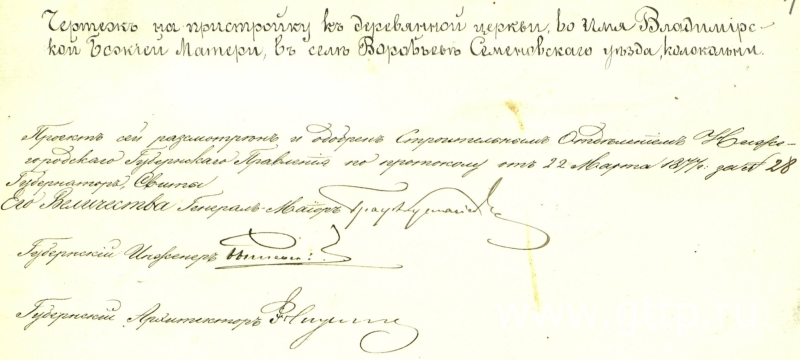 Чертежъ на пристройку къ деревянной церкви, во Имя Владимірс-
кой Божіей Матери, въ селѣ Воробьевѣ Семеновскаго уѣзда, колокольни.
Проектъ сей разсмотрѣнъ и одобренъ Строительнымъ Отдѣленіемъ Ниже-
городскаго Губернскаго Правленія по протоколу отъ 22 Марта 1877 г. за № 28
Губернаторъ, Свиты
Его Величества Генералъ-Маіоръ Графъ Кутайсовъ
Губернскій Инженеръ
Губернскій Архитекторъ